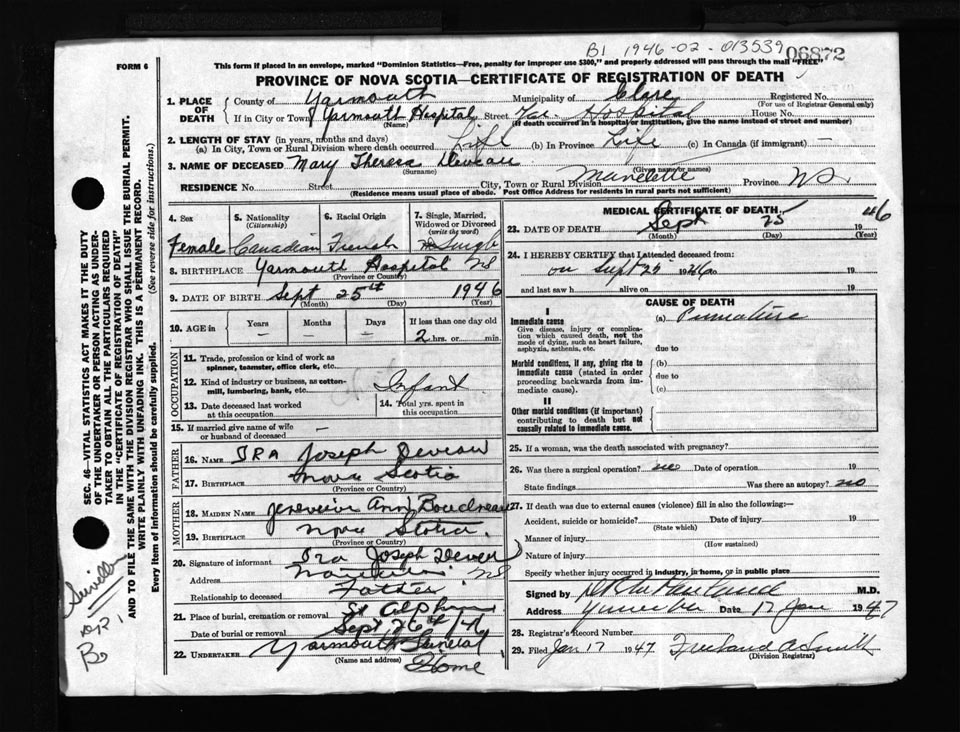 B1 1946-02-013539
06872
FORM 6
This form if placed in an envelope, marked "Dominion Statistics—Free, penalty for improper use $300," and properly addressed will pass through the mail "FREE"
PROVINCE OF NOVA SCOTIA—CERTIFICATE OF REGISTRATION OF DEATH
1. PLACE OF DEATH
County of Yarmouth Municipality of Clare Registered No.
(For use of Registrar General only)
If in City or Town Yarmouth Hospital Street Hospital House No.
(Name) (If death occurred in a hospital or institution, give the name instead of street and number)
2. LENGTH OF STAY (in years, months and days)
(a) In City, Town or Rural Division where death occurred Life (b) In Province Life (c) In Canada (if immigrant) —
3. NAME OF DECEASED Mary Theresa Deveau
(Surname) (Given name or names)
RESIDENCE No. Street City, Town or Rural Division Province NS
(Residence means usual place of abode. Post Office Address for residents in rural parts not sufficient)
4. Sex
Female
5. Nationality
(Citizenship)
Canadian
6. Racial Origin
French
7. Single, Married, Widowed or Divorced
(write the word)
Single
8. BIRTHPLACE Yarmouth Hospital NS
(Province or Country)
9. DATE OF BIRTH Sept 25th 1946
(Month) (Day) (Year)
10. AGE in
Years Months Days If less than one day old
2 hrs. or min.
OCCUPATION
11. Trade, profession or kind of work as spinner, teamster, office clerk, etc.
12. Kind of industry or business, as cotton-mill, lumbering, bank, etc. Infant
13. Date deceased last worked at this occupation
14. Total yrs. spent in this occupation
15. If married give name of wife or husband of deceased —
FATHER
16. NAME IRA Joseph Deveau
17. BIRTHPLACE Nova Scotia
(Province or Country)
MOTHER
18. MAIDEN NAME Genevieve Ann Boudreau
19. BIRTHPLACE Nova Scotia
(Province or Country)
20. Signature of informant Ira Joseph Deveau
Address NS
Relationship to deceased Father
21. Place of burial, cremation or removal St
Date of burial or removal Sept 26th/46
22. UNDERTAKER Yarmouth Funeral Home
(Name and address)
MEDICAL CERTIFICATE OF DEATH
23. DATE OF DEATH Sept 25 1946
(Month) (Day) (Year)
24. I HEREBY CERTIFY that I attended deceased from:
on Sept 25 1946 to 19
and last saw h alive on 19
CAUSE OF DEATH
I
Immediate cause (a) Premature
Give disease, injury or complication which caused death, not the mode of dying, such as heart failure, asphyxia, asthenia, etc.
due to
Morbid conditions, if any, giving rise to immediate cause (stated in order proceeding backwards from immediate cause).
(b)
due to
(c)
II
Other morbid conditions (if important) contributing to death but not causally related to immediate cause.
25. If a woman, was the death associated with pregnancy?
26. Was there a surgical operation? no Date of operation 19
State findings Was there an autopsy? no
27. If death was due to external causes (violence) fill in also the following:—
Accident, suicide or homicide? Date of injury 19
(State which)
Manner of injury
(How sustained)
Nature of injury
Specify whether injury occurred in industry, in home, or in public place
Signed by M.D.
Address Date 17 Jan 1947
28. Registrar's Record Number
29. Filed Jan 17 1947 Freeland A Smith
(Division Registrar)
SEC. 46—VITAL STATISTICS ACT MAKES IT THE DUTY
OF THE UNDERTAKER OR PERSON ACTING AS UNDER-
TAKER TO OBTAIN ALL THE PARTICULARS REQUIRED
IN THE "CERTIFICATE OF REGISTRATION OF DEATH"
AND TO FILE THE SAME WITH THE DIVISION REGISTRAR WHO SHALL ISSUE THE BURIAL PERMIT.
WRITE PLAINLY WITH UNFADING INK. THIS IS A PERMANENT RECORD.
Every item of information should be carefully supplied. (See reverse side for instructions.)
B